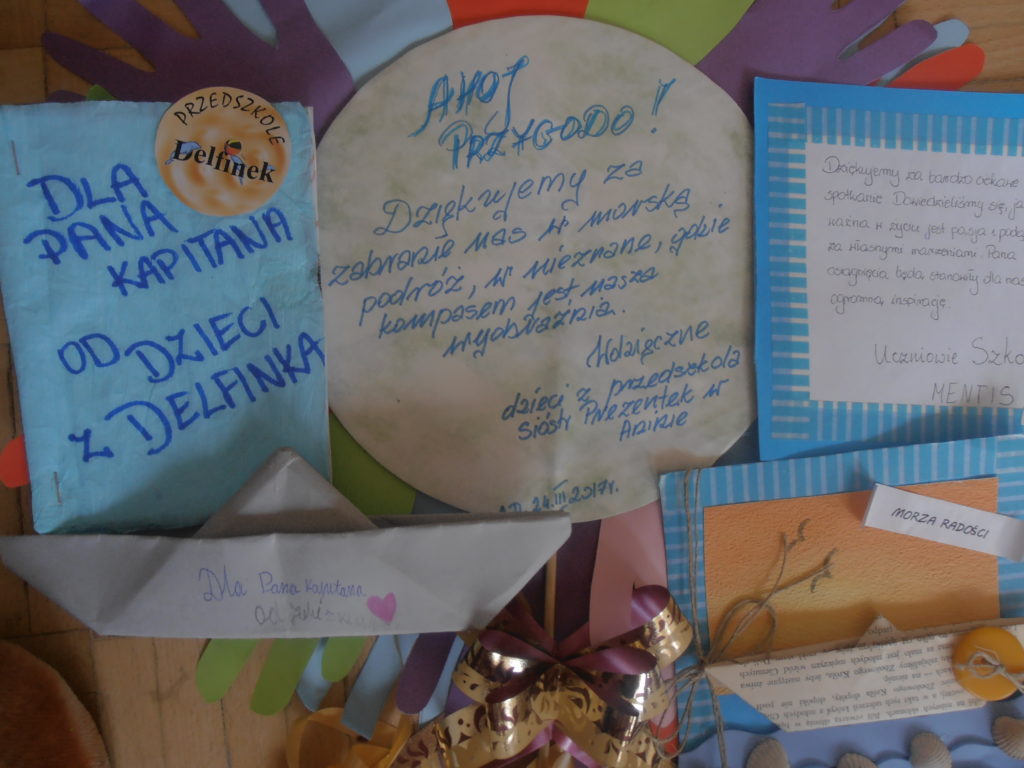 PRZEDSZKOLE
Delfinek
DLA
PANA
KAPITANA
OD DZIECI
Z DELFINKA
AHOJ
PRZYGODO!
Dziękujemy za
zabranie nas w morską
podróż, w nieznane, gdzie
kompasem jest nasza
wyobraźnia.
Wdzięczne
dzieci z przedszkola
Sióstr Prezentek w
AD. 24.III.2017r.
Dziękujemy za bardzo ciekawe
spotkanie. Dowiedzieliśmy się, ja
ważna w życiu jest pasja i podą
za własnymi marzeniami. Pana
osiągnięcia będą stanowiły dla nas
ogromną inspirację.
Uczniowie Szko
MENTIS
MORZA RADOŚCI
Dla Pana Kapitana
od